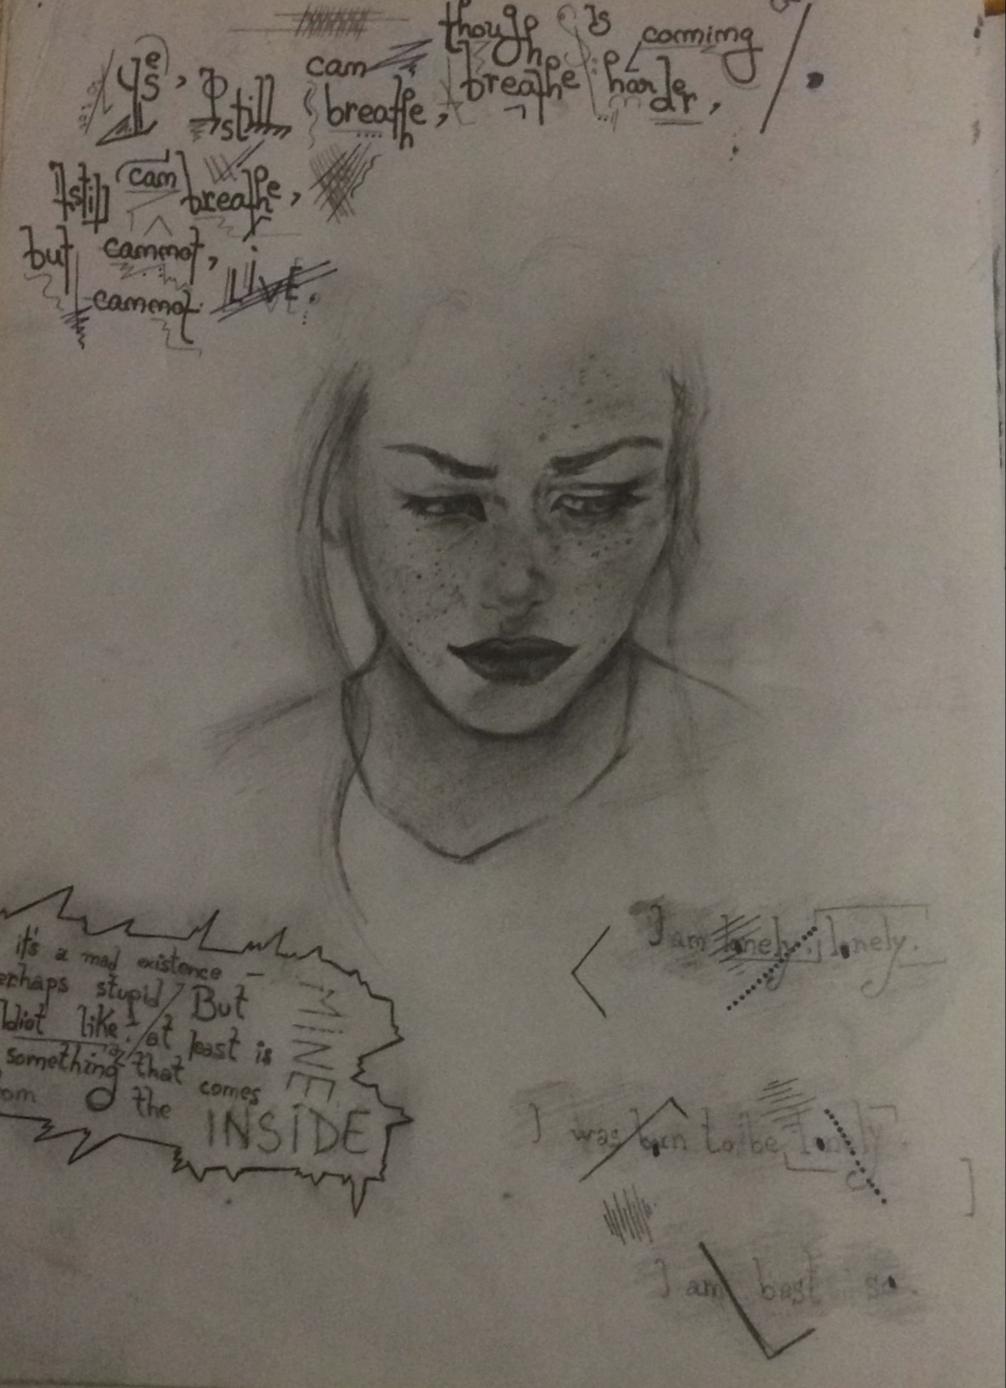 Yes, I still can breathe, though breathe is coming harder,
I still can breathe,
but cannot,
cannot LiVE.
it's a mad existence –
perhaps stupid / But
Idiot like! at least is MINE
something that comes
from the INSIDE
I am lonely, lonely.
I was born to be lonely.
I am best so.